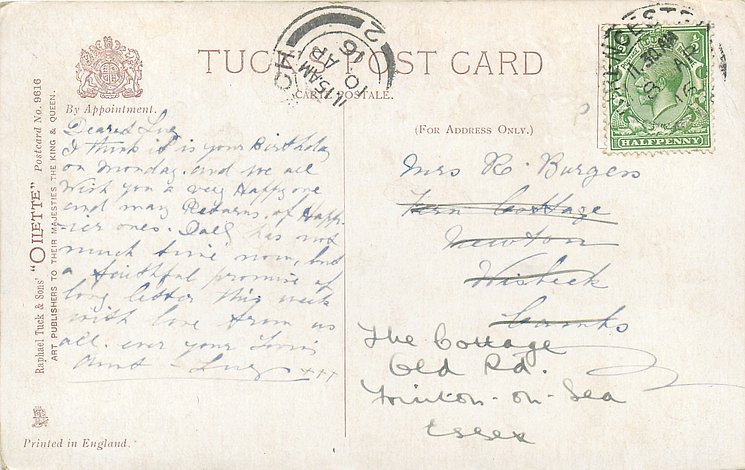 TUCK'S POST CARD
CARTE POSTALE.
By Appointment.
(FOR ADDRESS ONLY.)
Raphael Tuck & Sons' "OILETTE" Postcard No. 9616
ART PUBLISHERS TO THEIR MAJESTIES THE KING & QUEEN.
11.15 AM
10 AP
16
2
11.30 AM
8 AP
16
HALFPENNY
Dearest Lucy
I think it is your Birthday
on Monday. and we all
Wish you a very Happy one
and many Returns. of Happ-
-ier ones. has not
much time now, but
a faithful promise of
long letter this week
with love from us
all. ever your loving
Aunt Lucy xxx
Mrs R. Burgess
Fern Cottage
Newton
Wisbeck
Cambs
The Cottage
Old Rd.
Frinton-on-Sea
Essex
Printed in England.